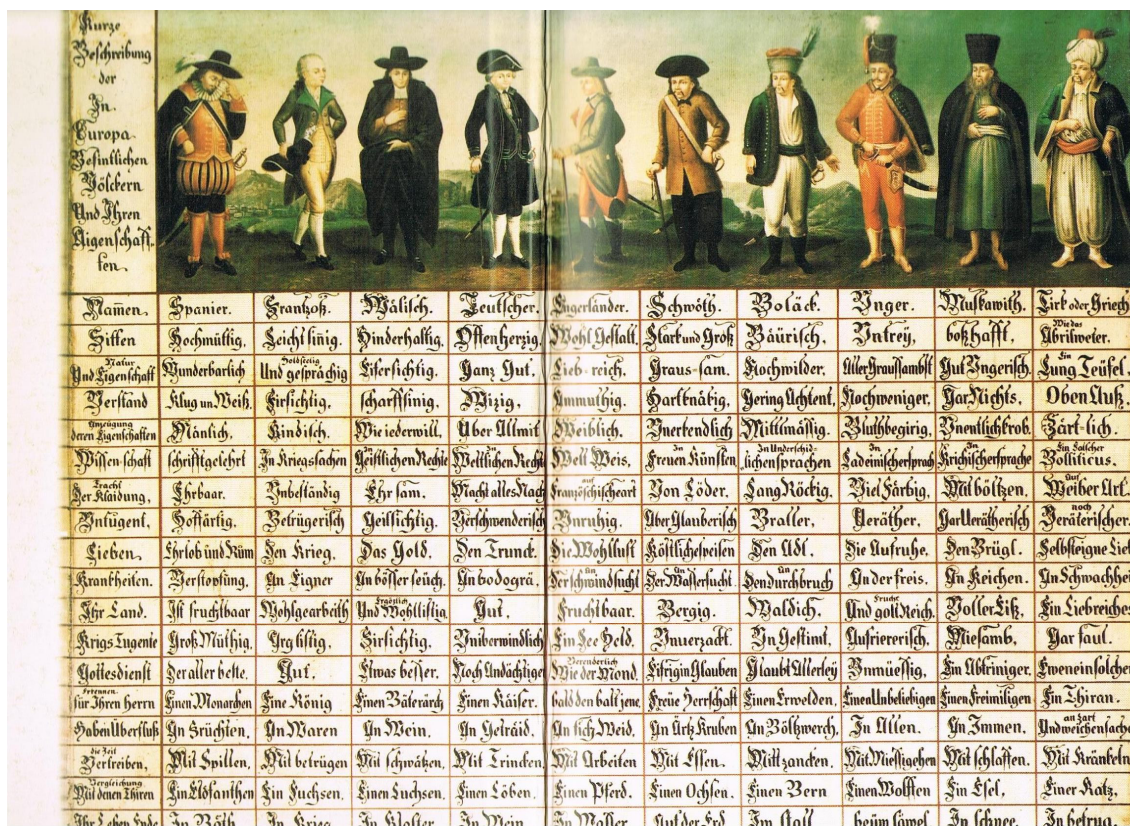 Kurze
Beschreibung
der
In
Europa
Befintlichen
Völckern
Und Ihren
Aigenschaff-
ten.
Namen. Spanier. Frantzoß. Wälisch. Teutscher. Engerländer. Schwöth. Boläck. Unger. Muskawith. Tirk oder Griech
Sitten Hochmüttig. Leicht sinig. Hinderhaltig. Offenherzig. Wohl Gestalt. Stark und Groß Bäurisch. Untrey. boßhafft. Wie das Abrilweter.
Natur Und Eigenschaft Wunderbarlich Und gesprächig Eifersichtig. Ganz Gut. Lieb-reich. Graus-sam. Nochwilder. Aller Graussambst Gut Ungerisch. Ein Lung Teüfel.
Verstand Klug un Weiß. Firsichtig. scharffsinig. Wizig. Ammuthig. Hartknäbig. Gering Achtent. Nochweniger. Gar Nichts. Oben Auß.
Anzeügung deren Eigenschaften Mänlich. Kindisch. Wie iederwill. Über Allmit Weiblich. Unerkendlich Mittlmässig. Bluthbegirig. Unentlichkrob. Zärt-lich.
Wissenschaft schrifftgelehrt In Kriegssachen In Geistlichen Rechte In Weltlichen Recht Welt Weis. In Freuen Künsten In Underschidlichensprachen In Ladeinischersprach In Krichischersprache Ein Falscher Bolliticus.
Tracht Der Klaidung. Ehrbaar. Unbeständig Ehrsam. Macht alles Nach auf Französcheart Von Löder. Lang Röckig. Viel Färbig. Mit böltzen. Auf Weiber Art.
Untugent. Hoffärtig. Betrügerisch Geilsichtig. Verschwenderisch Unruhig. Über Glauberisch Braller. Veräther. Gar Verätherisch noch Veräterischer.
Lieben. Ehrlob und Rüm Den Krieg. Das Gold. Den Trunck. Die Wohllust Köstlichespeisen Den Adl. Die Aufruhe. Den Brügl. Selbsteigne Lieb
Krankheiten. Verstopfung. An Eigner An bösser seüch. An bodogrä. An Der schwindsucht An Der Wassersucht. An Den Durchbruch An der freis. An Keichen. An Schwachhei
Ihr Land. Ist fruchtbaar Wohlgearbeith Ergözlich Und Wohllistig Gut. Fruchtbaar. Bergig. Waldich. Frucht Und golt Reich. Voller Eiß. Ein Liebreiches
Krigs Tugente Groß Müthig. Arg listig. Firsichtig. Uniberwindlich Ein See Held. Unuerzackt. Un Gestimt. Aufriererisch. Miesamb. Gar faul.
Gottesdienst Der aller beste. Gut. Etwas besser. Noch Andächtiger Verenderlich Wie der Mond. Eifrig in Glauben Glaubt Allerley Unmüessig. Ein Abtriniger. Eweneinsolcher
Erkennen für Ihren herrn Einen Monarchen Eine König Einen Bäterärch Einen Käiser. bald den balt jene. Freüe Herrschaft Einen Erwelden. Einen Unbeliebigen Einen Freimiligen Ein Thiran.
Haben Überfluß An Früchten. An Waren An Wein. An Geträid. An fich Weid. An Ärtz Kruben An Böltzwerch. In Allen. An Immen. an Zart Und weichen sache
die Zeit Vertreiben. Mit Spillen. Mit betrügen Mit schwätzen. Mit Trincken Mit Arbeiten Mit Essen. Mitt zancken. Mit Miessigehen Mit schlaffen. Mit Kränkeln
Vergleichung Mit denen Thiren Ein Elofanthen Ein Fuchsen. Einen Luchsen. Einen Löben. Einen Pferd. Einen Ochsen. Einen Bern Einen Wolffen Ein Esel. Einer Katz.
Ihr Leben Ende In Böth. In Krieg. In Kloster. In Wein. In Wasser. Auf der Erd. Im stall beim säwel. In schnee. In betrug.